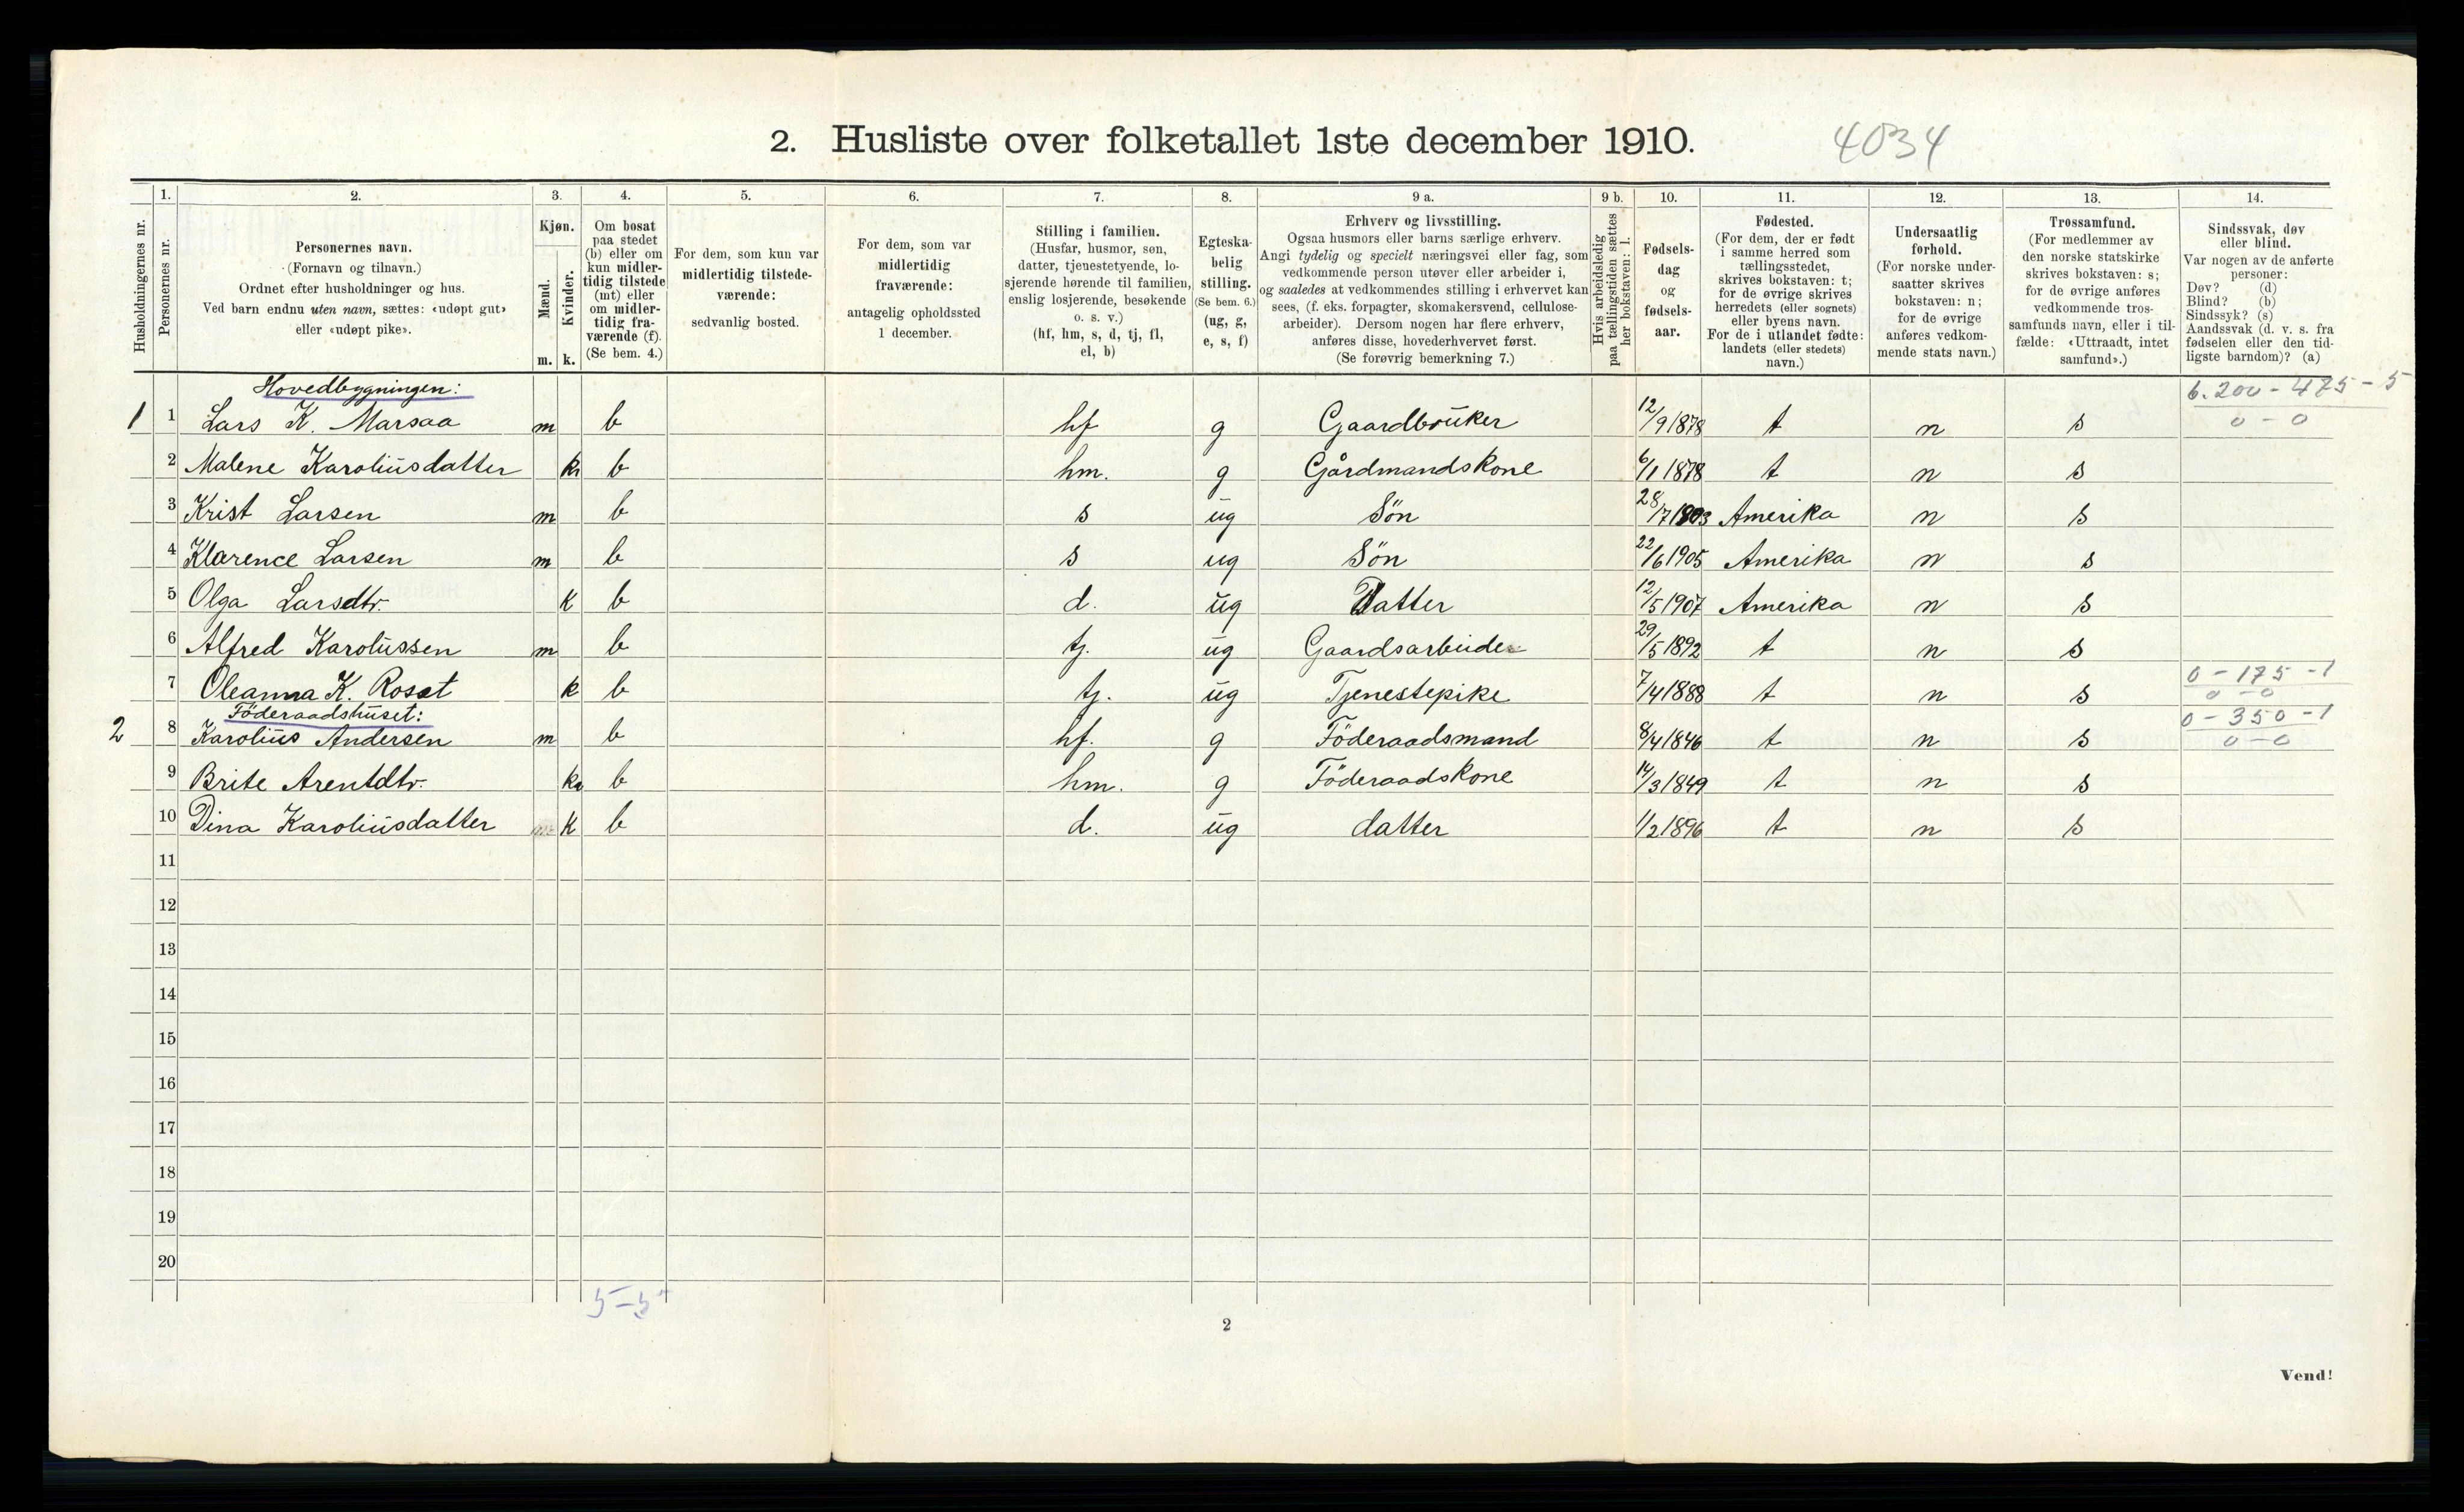 2. Husliste over folketallet 1ste december 1910.
4034
Husholdningernes nr.
1.
Personernes nr.
2.
Personernes navn.
(Fornavn og tilnavn.)
Ordnet efter husholdninger og hus.
Ved barn endnu uten navn, sættes: «udøpt gut»
eller «udøpt pike».
3.
Kjøn.
Mænd.
Kvinder.
m. k.
4.
Om bosat
paa stedet
(b) eller om
kun midler-
tidig tilstede
(mt) eller
om midler-
tidig fra-
værende (f).
(Se bem. 4.)
5.
For dem, som kun var
midlertidig tilstede-
værende:
sedvanlig bosted.
6.
For dem, som var
midlertidig
fraværende:
antagelig opholdssted
1 december.
7.
Stilling i familien.
(Husfar, husmor, søn,
datter, tjenestetyende, lo-
sjerende hørende til familien,
enslig losjerende, besøkende
o. s. v.)
(hf, hm, s, d, tj, fl,
el, b)
8.
Egteska-
belig
stilling.
(Se bem. 6.)
(ug, g,
e, s, f)
9 a.
Erhverv og livsstilling.
Ogsaa husmors eller barns særlige erhverv.
Angi tydelig og specielt næringsvei eller fag, som
vedkommende person utøver eller arbeider i,
og saaledes at vedkommendes stilling i erhvervet kan
sees, (f. eks. forpagter, skomakersvend, cellulose-
arbeider). Dersom nogen har flere erhverv,
anføres disse, hovederhvervet først.
(Se forøvrig bemerkning 7.)
9 b.
Hvis arbeidsledig
paa tællingstiden sættes
her bokstaven: l.
10.
Fødsels-
dag
og
fødsels-
aar.
11.
Fødested.
(For dem, der er født
i samme herred som
tællingsstedet,
skrives bokstaven: t;
for de øvrige skrives
herredets (eller sognets)
eller byens navn.
For de i utlandet fødte:
landets (eller stedets)
navn.)
12.
Undersaatlig
forhold.
(For norske under-
saatter skrives
bokstaven: n;
for de øvrige
anføres vedkom-
mende stats navn.)
13.
Trossamfund.
(For medlemmer av
den norske statskirke
skrives bokstaven: s;
for de øvrige anføres
vedkommende tros-
samfunds navn, eller i til-
fælde: «Uttraadt, intet
samfund».)
14.
Sindssvak, døv
eller blind.
Var nogen av de anførte
personer:
Døv? (d)
Blind? (b)
Sindssyk? (s)
Aandssvak (d. v. s. fra
fødselen eller den tid-
ligste barndom)? (a)
Hovedbygningen:
6.200 - 475 - 5
1 1 Lars K. Marsaa m b hf g Gaardbruker 12/9 1878 t n s 0 - 0
2 Malene Karoliusdatter k b hm. g Gårdmandskone 6/1 1878 t n s
3 Krist Larsen m b s ug Sön 28/7 1903 Amerika n s
4 Klarence Larsen m b s ug Sön 22/6 1905 Amerika n s
5 Olga Larsdtr. k b d. ug Datter 12/5 1907 Amerika n s
6 Alfred Karolussen m b tj. ug Gaardsarbeider 29/5 1892 t n s
0 - 175 - 1
7 Oleanna K. Roset k b tj. ug Tjenestepike 7/4 1888 t n s 0 - 0
Föderaadshuset:
0 - 350 - 1
2 8 Karolius Andersen m b hf. g Föderaadsmand 8/4 1846 t n s 0 - 0
9 Brite Arentdtr. k b hm. g Föderaadskone 14/3 1849 t n s
10 Dina Karoliusdatter k b d. ug datter 1/2 1896 t n s
11
12
13
14
15
16
17
18
19
20
5 - 5
2
Vend!